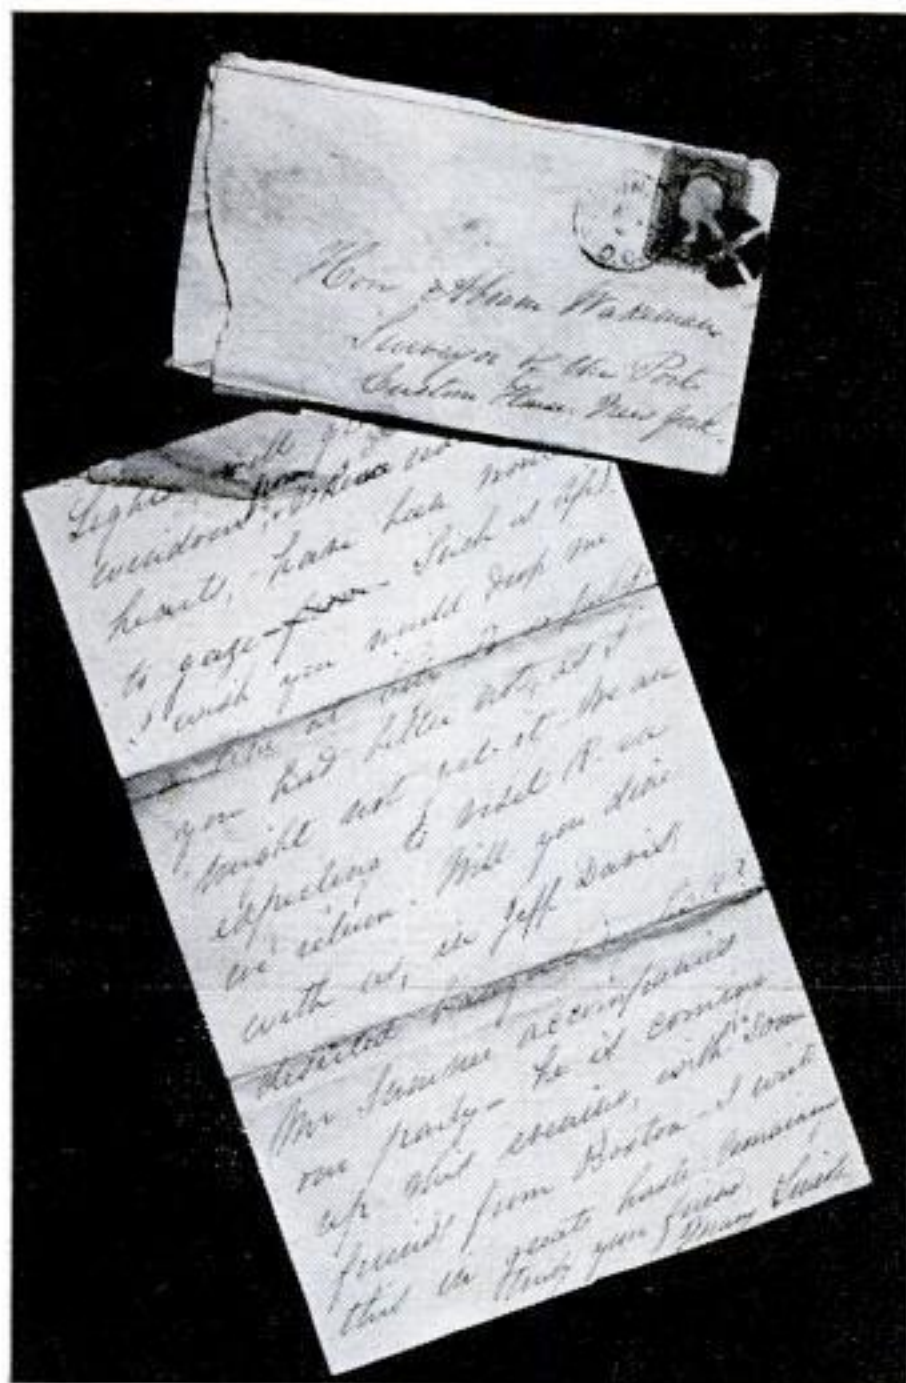 Hon Abram Wakeman
Surveyor of the Port
Custom House New York.
hearts, - have been
to gaze from - Such is life.
I wish you would drop me
a line at
you had better not, as I
might not get it - We are
expecting to visit R. on
our return. Will you dine
with us, in Jeff Davis'
deserted banquetting
Mr Sumner accompanies
our party - he is coming
up this evening, with some
friends from Boston - I write
this in great haste Remaining
truly your friend
Mary